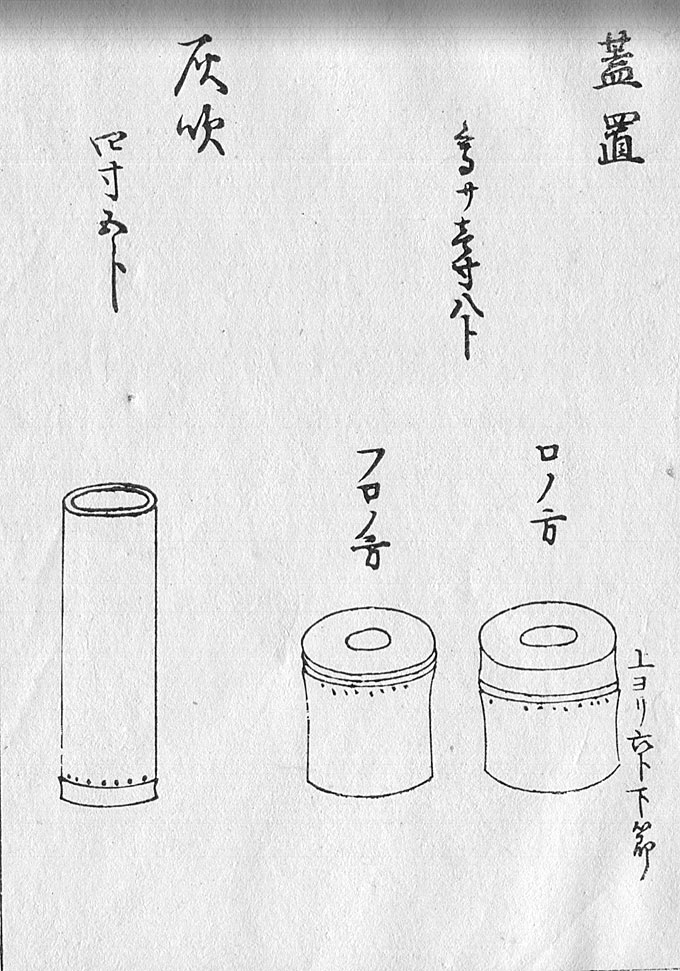 蓋置
高サ壱寸八卜
ロノ方
上ヨリ六卜下節
フロノ方
灰吹
四寸五卜